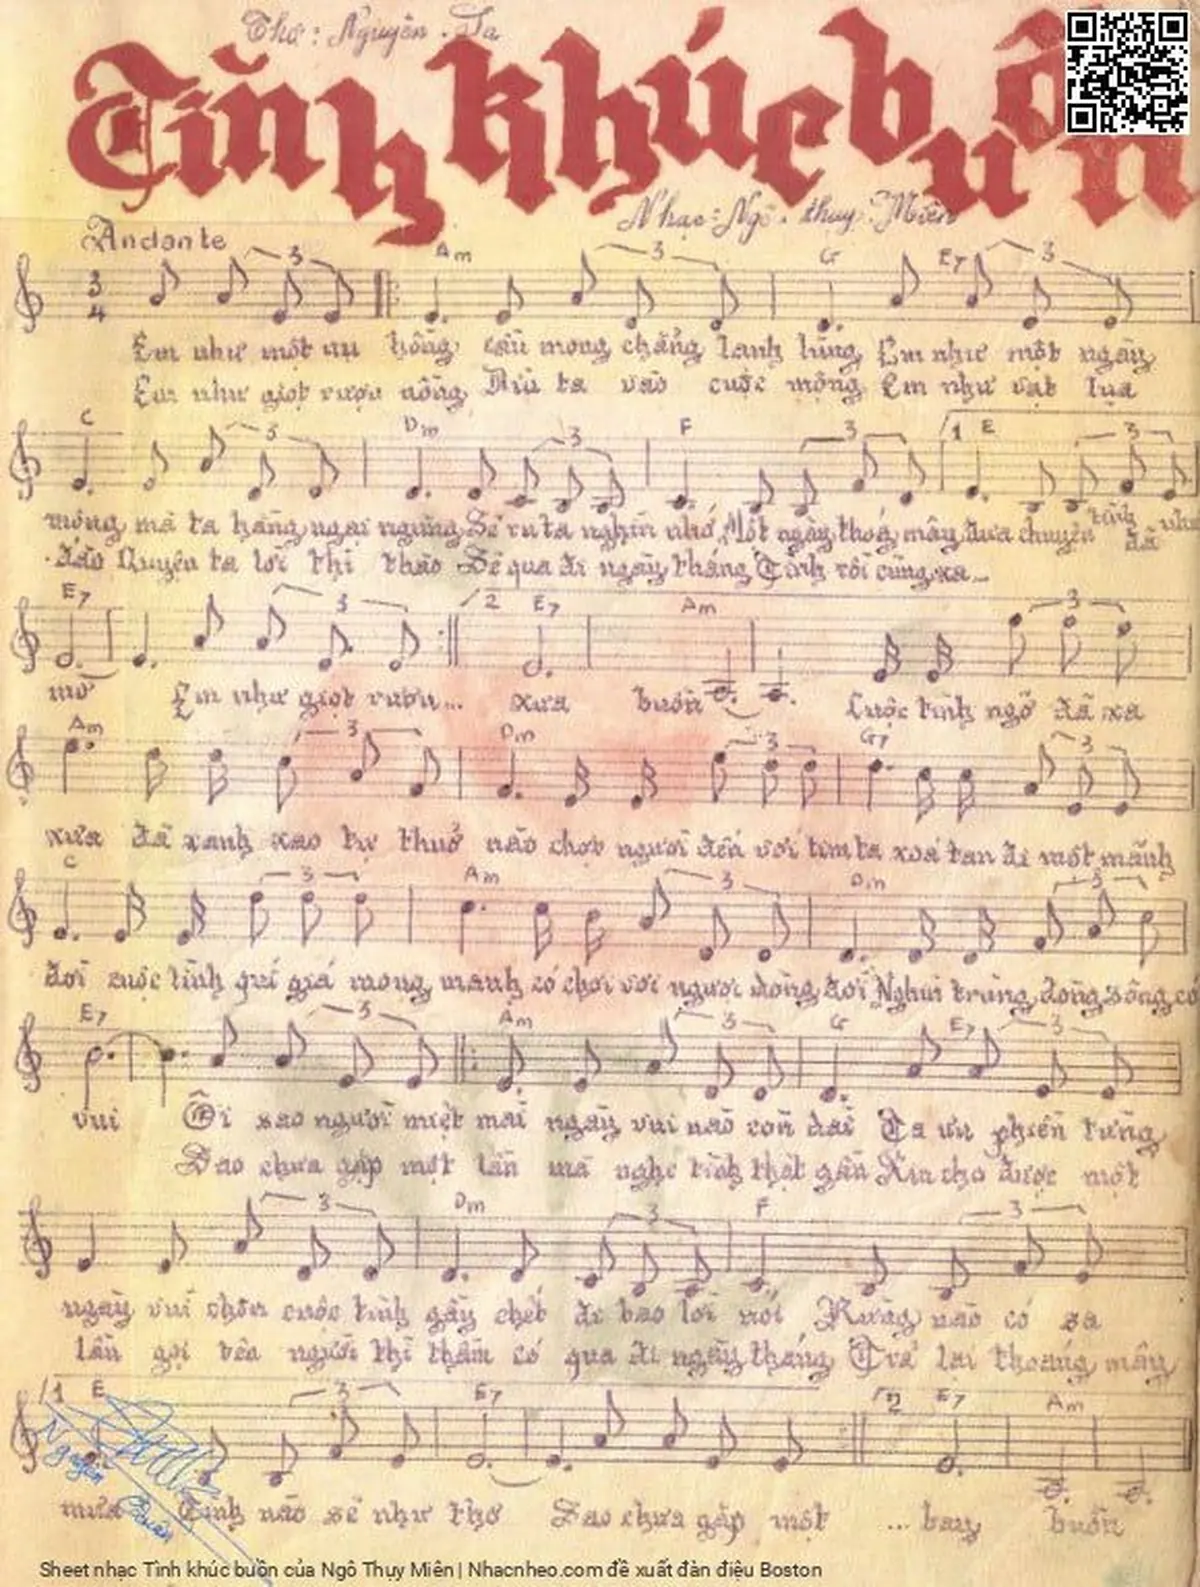 Thơ: Nguyên . Sa
Tình khúc buồn
Nhạc: Ngô . thụy . Miên
Andante
3 Am 3 G E7 3
3
4
Em như một nụ hồng cầu mong chẳng lạnh lùng Em như một ngày
Em như giọt rượu nồng Dìu ta vào cuộc mộng Em như vạt lụa
C 3 Dm 3 F 3 1 E 3
mộng mà ta hằng ngại ngùng Sẽ ru ta nghìn nhớ Một ngày thoáng mây đưa chuyện đã như
đào Quyện ta lời thì thào Sẽ qua đi ngày tháng Tình rồi cũng xa...
E7 3 2 E7 Am 3
mơ Em như giọt rượu... xưa buồn Cuộc tình ngỡ đã xa
Am 3 Dm 3 G7 3
xưa đã xanh xao tự thuở nào chợt người đến với tim ta xoá tan đi một mảnh
C 3 Am 3 Dm 3
đời cuộc tình quí giá mong manh có chơi vơi người dòng đời Nghìn trùng dòng sông có
E7 3 Am 3 G E7 3
vui Ôi sao người miệt mài ngày vui nào còn dài Ta ưu phiền từng
Sao chưa gặp một lần mà nghe tình thật gần Xin cho được một
3 Dm 3 F 3
ngày vui chôn cuộc tình gầy chết đi bao lời nói Rừng nào có sa
lần gọi tên người thì thầm có qua đi ngày tháng Trả lại thoáng mây
1 E 3 E7 2 E7 Am
mưa Tình nào sẽ như thơ Sao chưa gặp một ... bay buồn
Sheet nhạc Tình khúc buồn của Ngô Thụy Miên | Nhacnheo.com đề xuất đàn điệu Boston